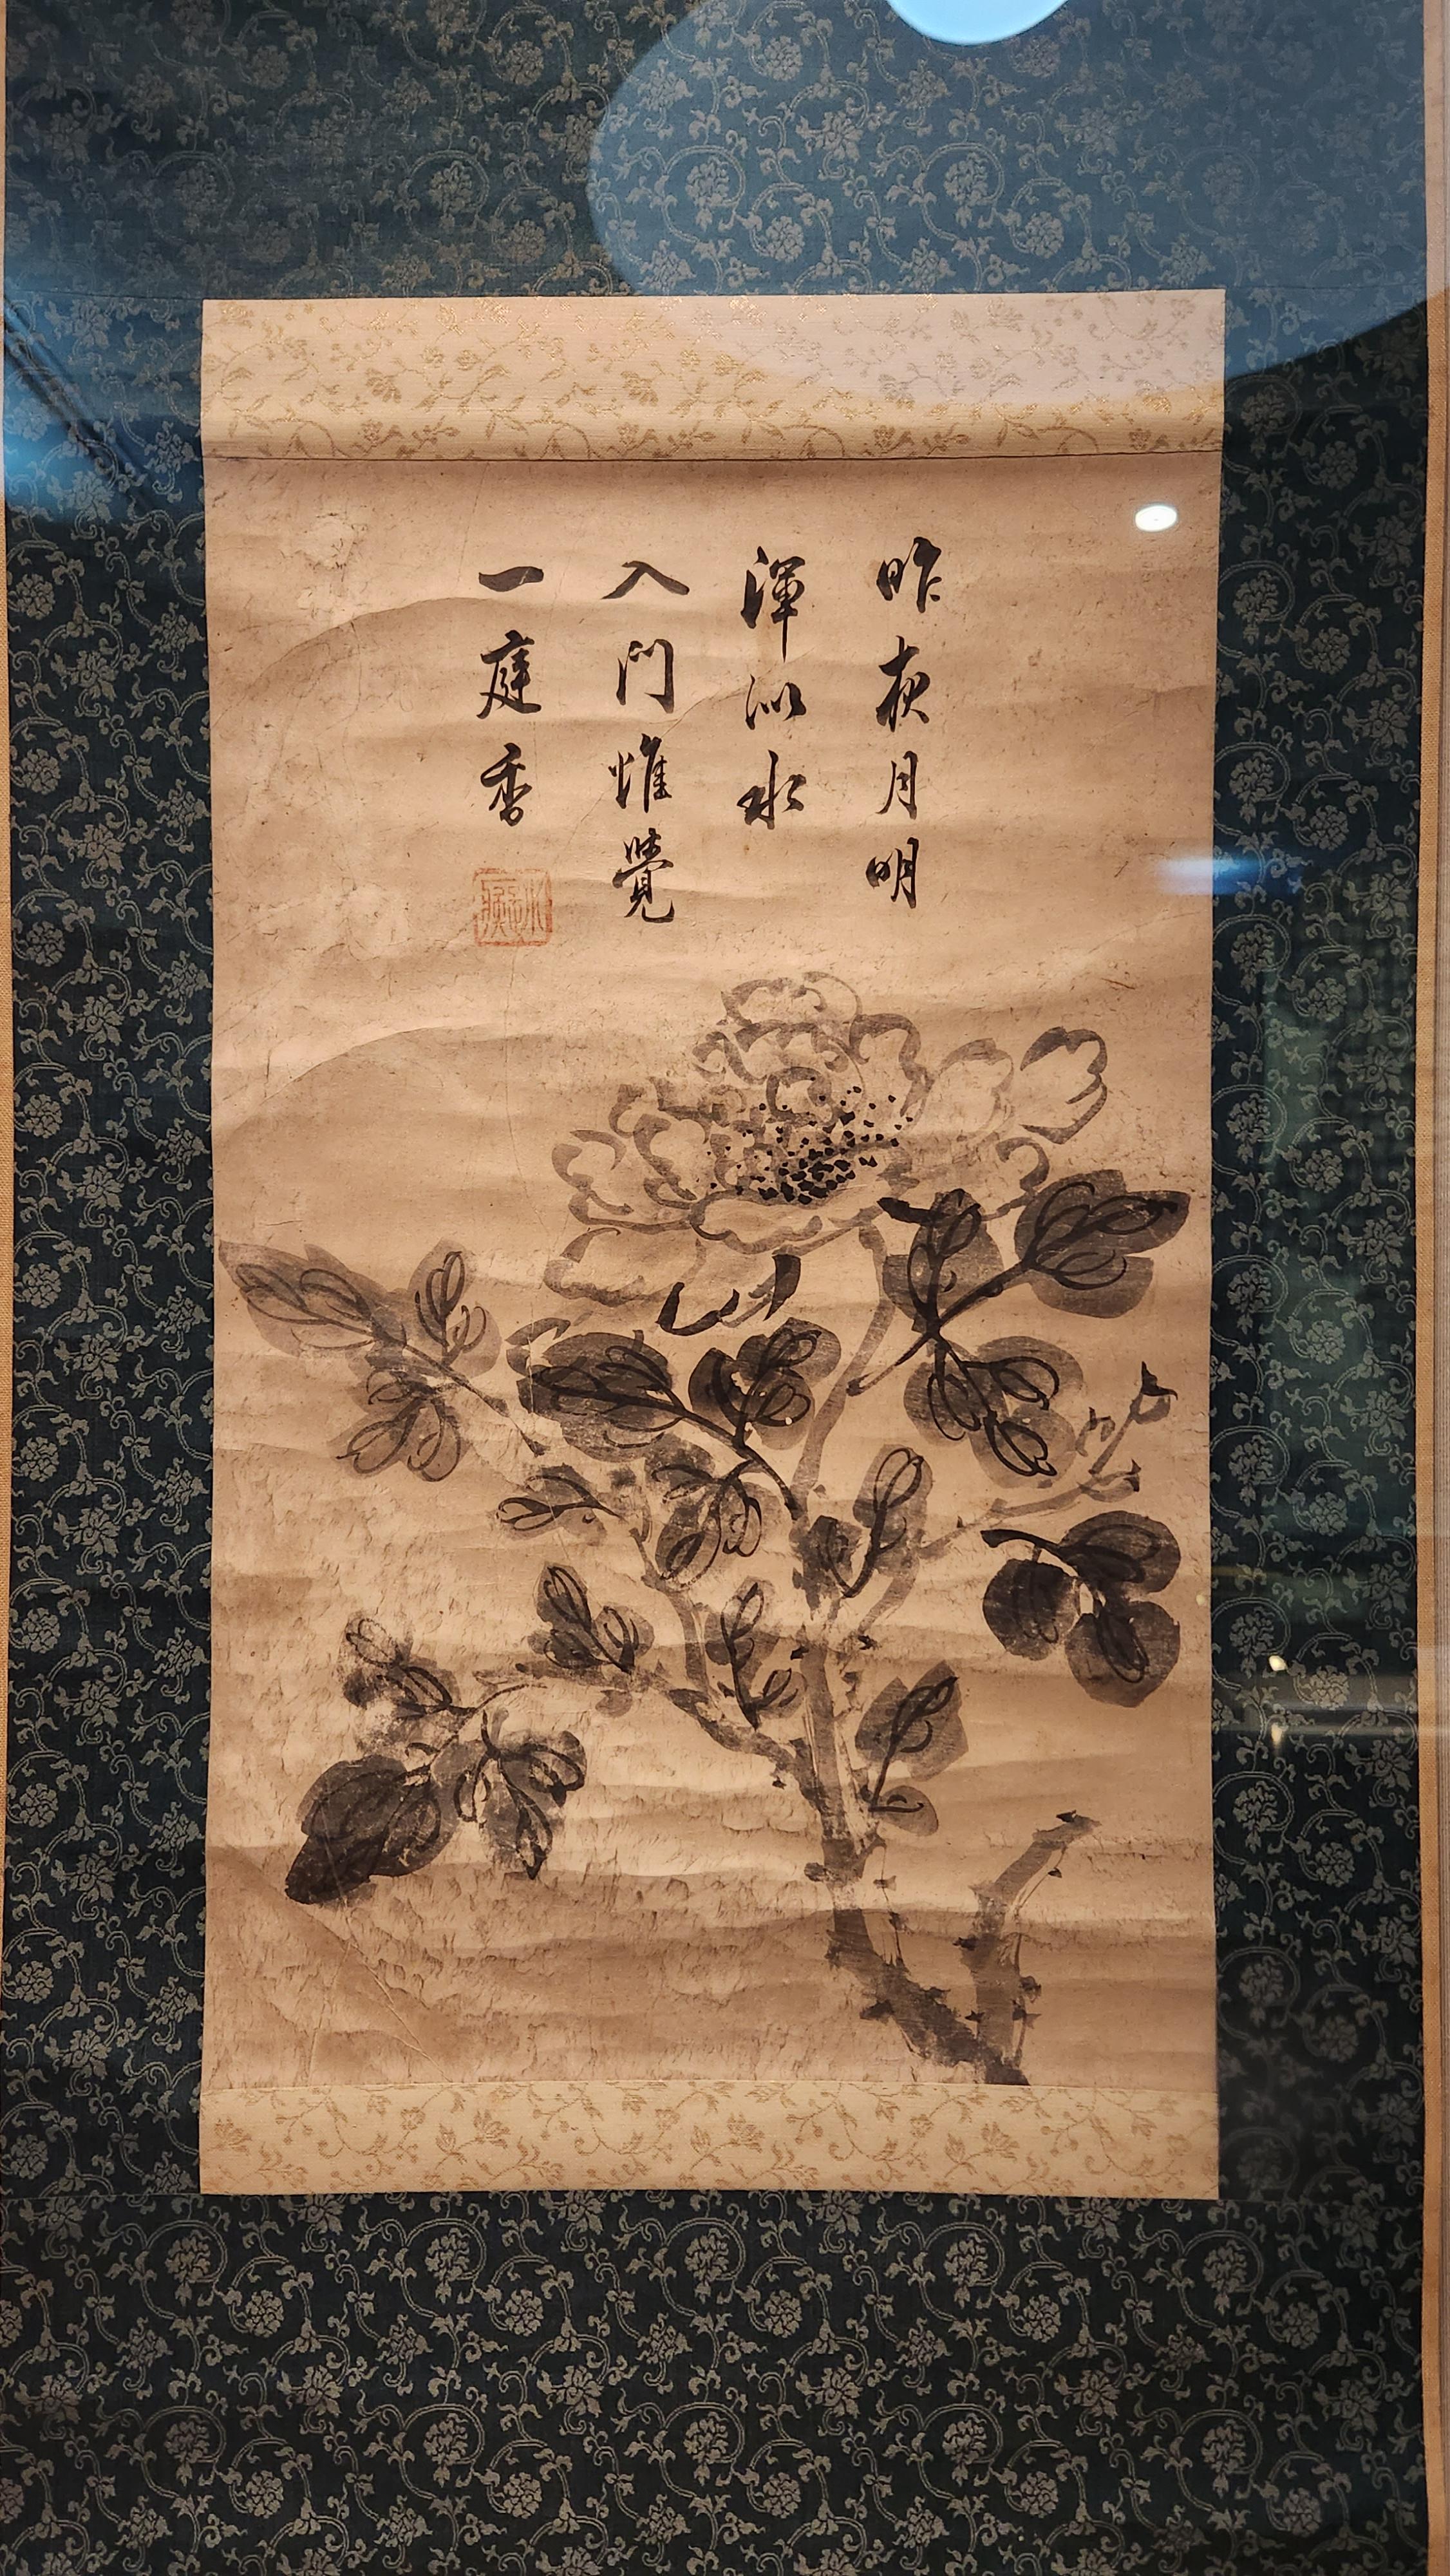 昨夜月明
渾似水
入門惟覺
一庭香